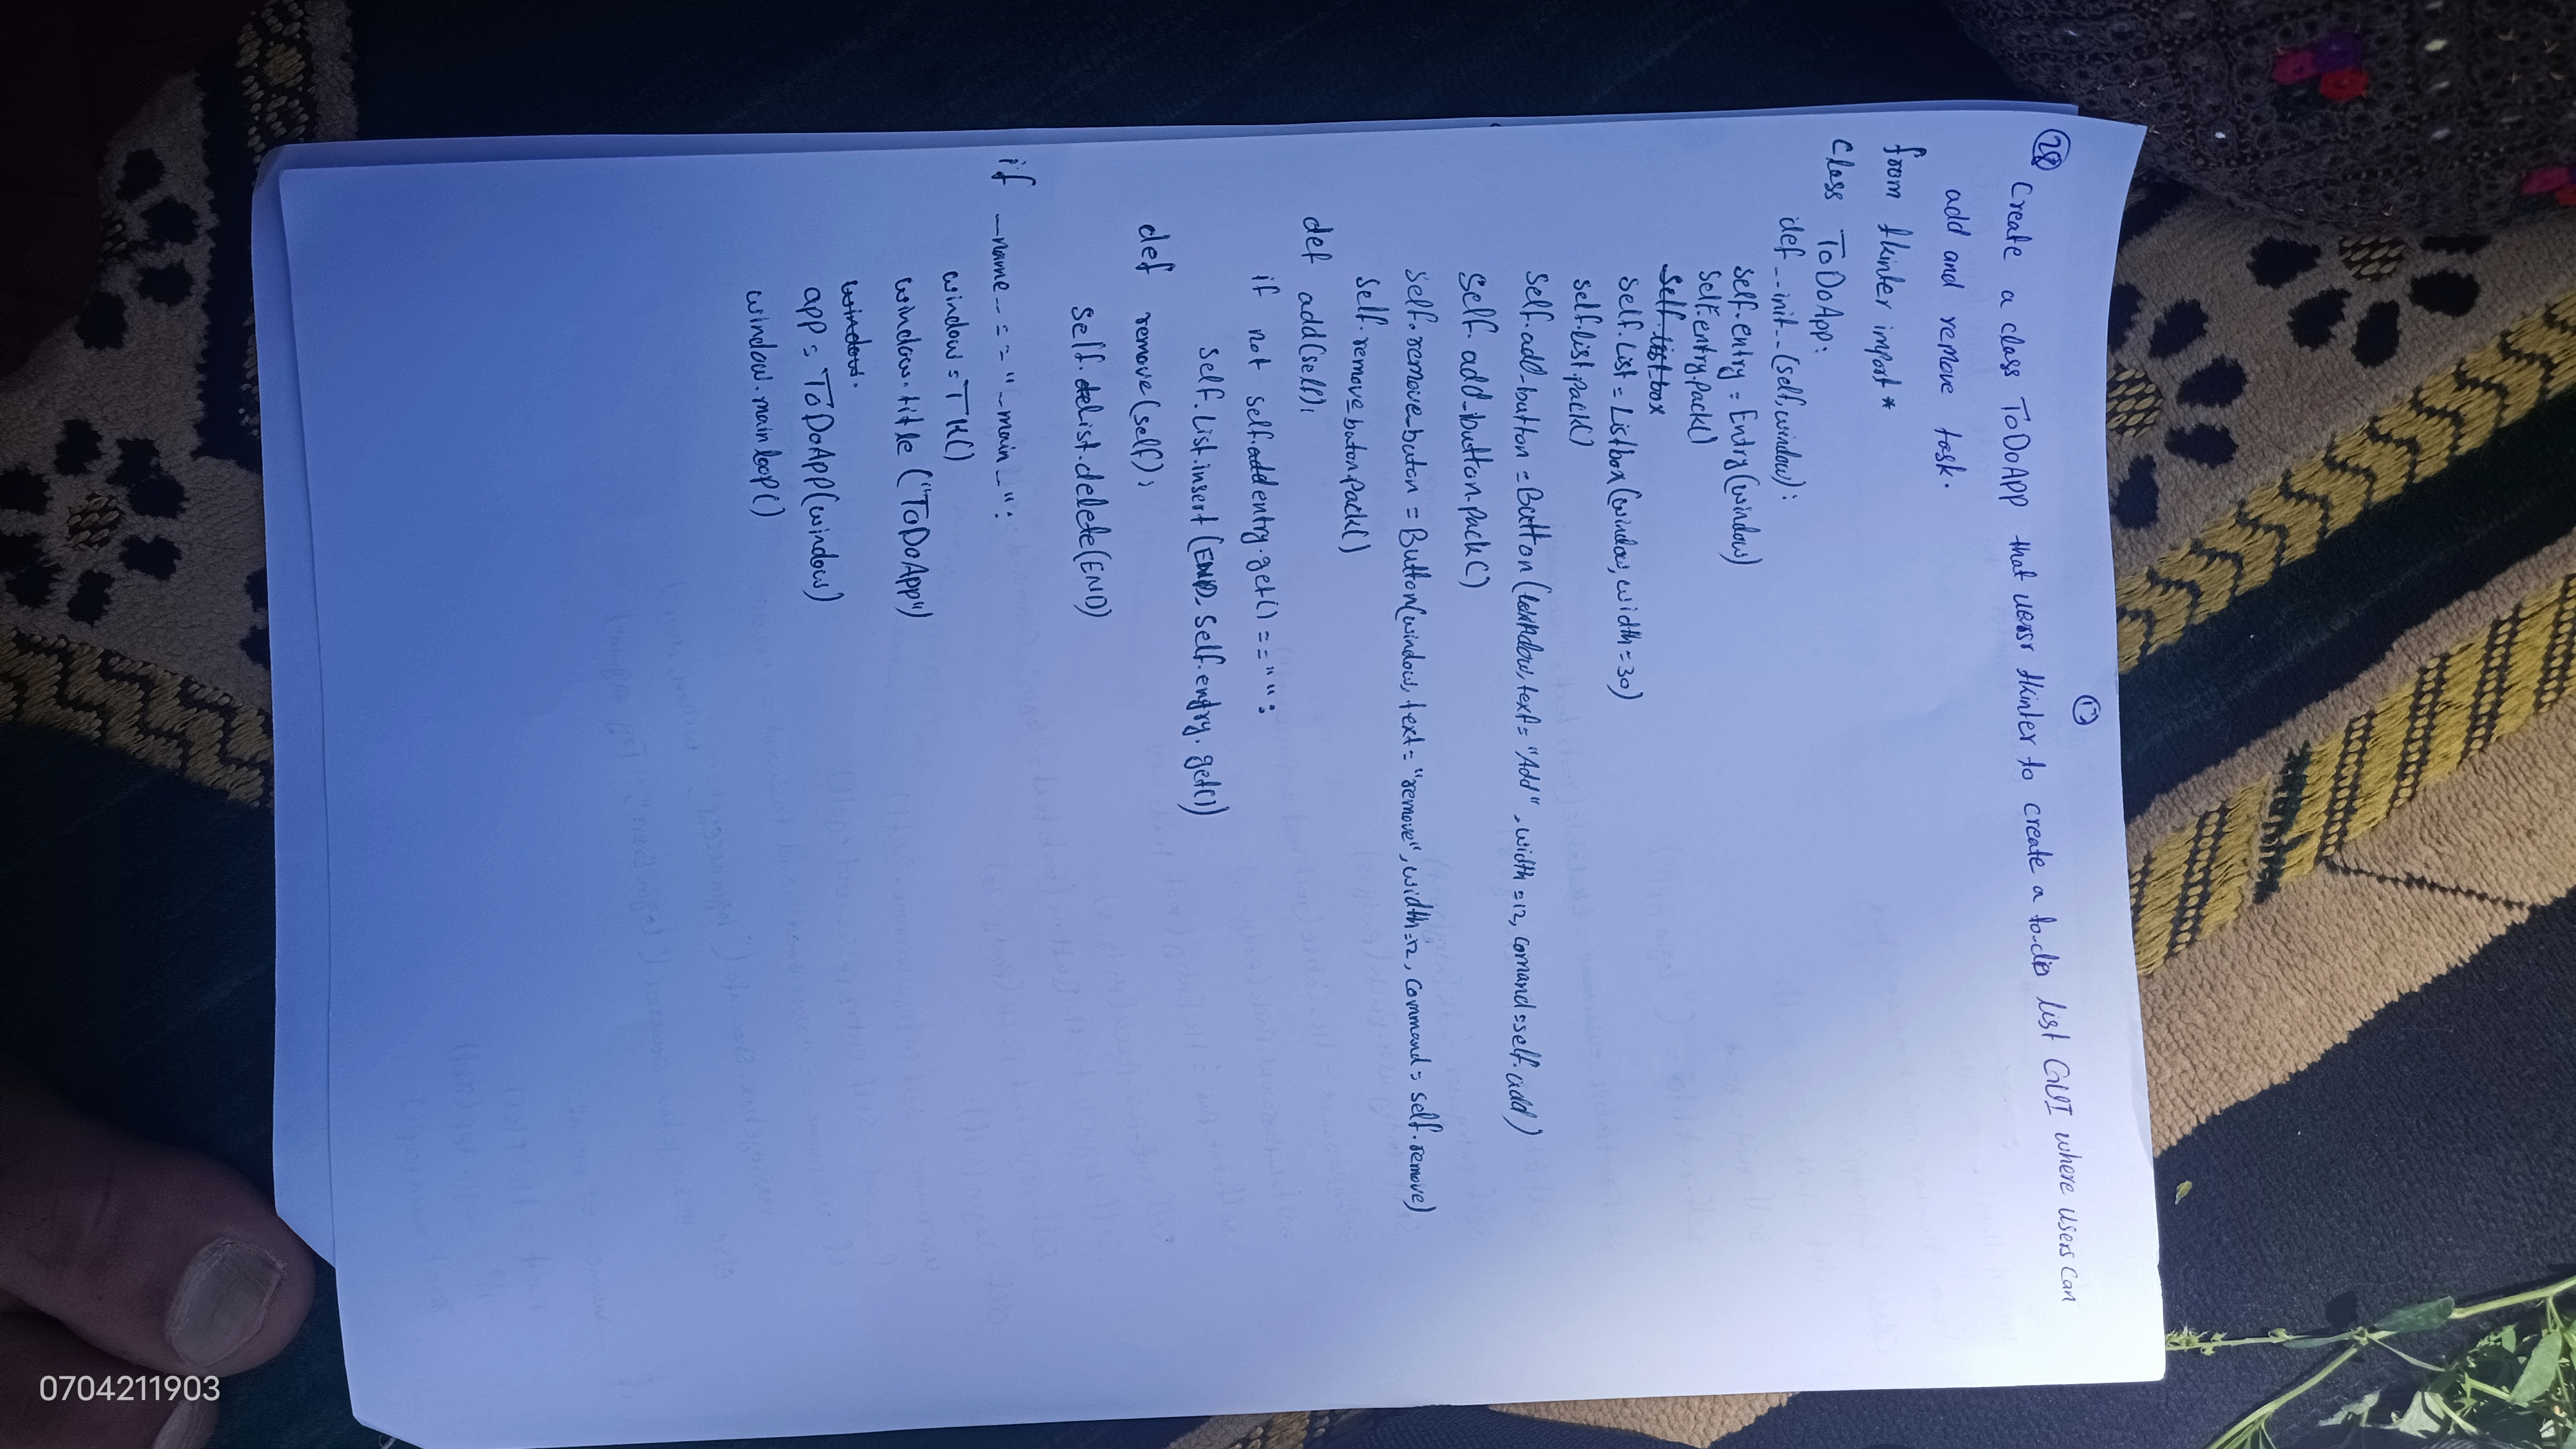 28
Create a class ToDoAPP that uersr tkinter to create a to-do list GUI where users can
add and remove task.
from tkinter import *
Class ToDoApp:
def __init__(self,window):
self.entry = Entry(window)
self.entry.pack()
self.list box
self.List = Listbox(window, width=30)
self.list.pack()
self.add_button = Button(window, text= "Add", width =12, comand=self.add)
self.add_button.pack()
self.remove_buton = Button(window, text= "remove", width=12, command= self.remove)
self.remove_buton.pack()
def add(self):
if not self.add entry.get() == "":
self.List.insert(END, self.entry.get())
def remove(self):
self.deList.delete(END)
if _name_ == "_main_":
window = TK()
window.title("ToDoApp")
window.
app = ToDoApp(window)
window.mainloop()
0704211903